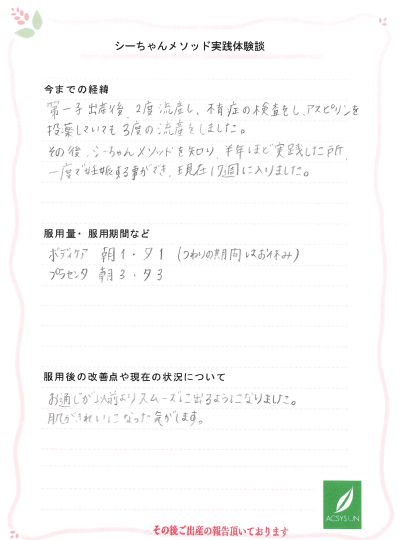 シーちゃんメソッド実践体験談
今までの経緯
第一子出産後、2度流産し、不育症の検査をし、アスピリンを
投薬していても3度の流産をしました。
その後、シーちゃんメソッドを知り、半年ほど実践した所、
一度で妊娠する事ができ、現在17週に入りました。
服用量・服用期間など
ボディケア 朝1・夕1 (つわりの期間はお休み)
プラセンタ 朝3・夕3
服用後の改善点や現在の状況について
お通じが以前よりスムーズに出るようになりました。
肌がきれいになった気がします。
ACSYSUN
その後ご出産の報告頂いております